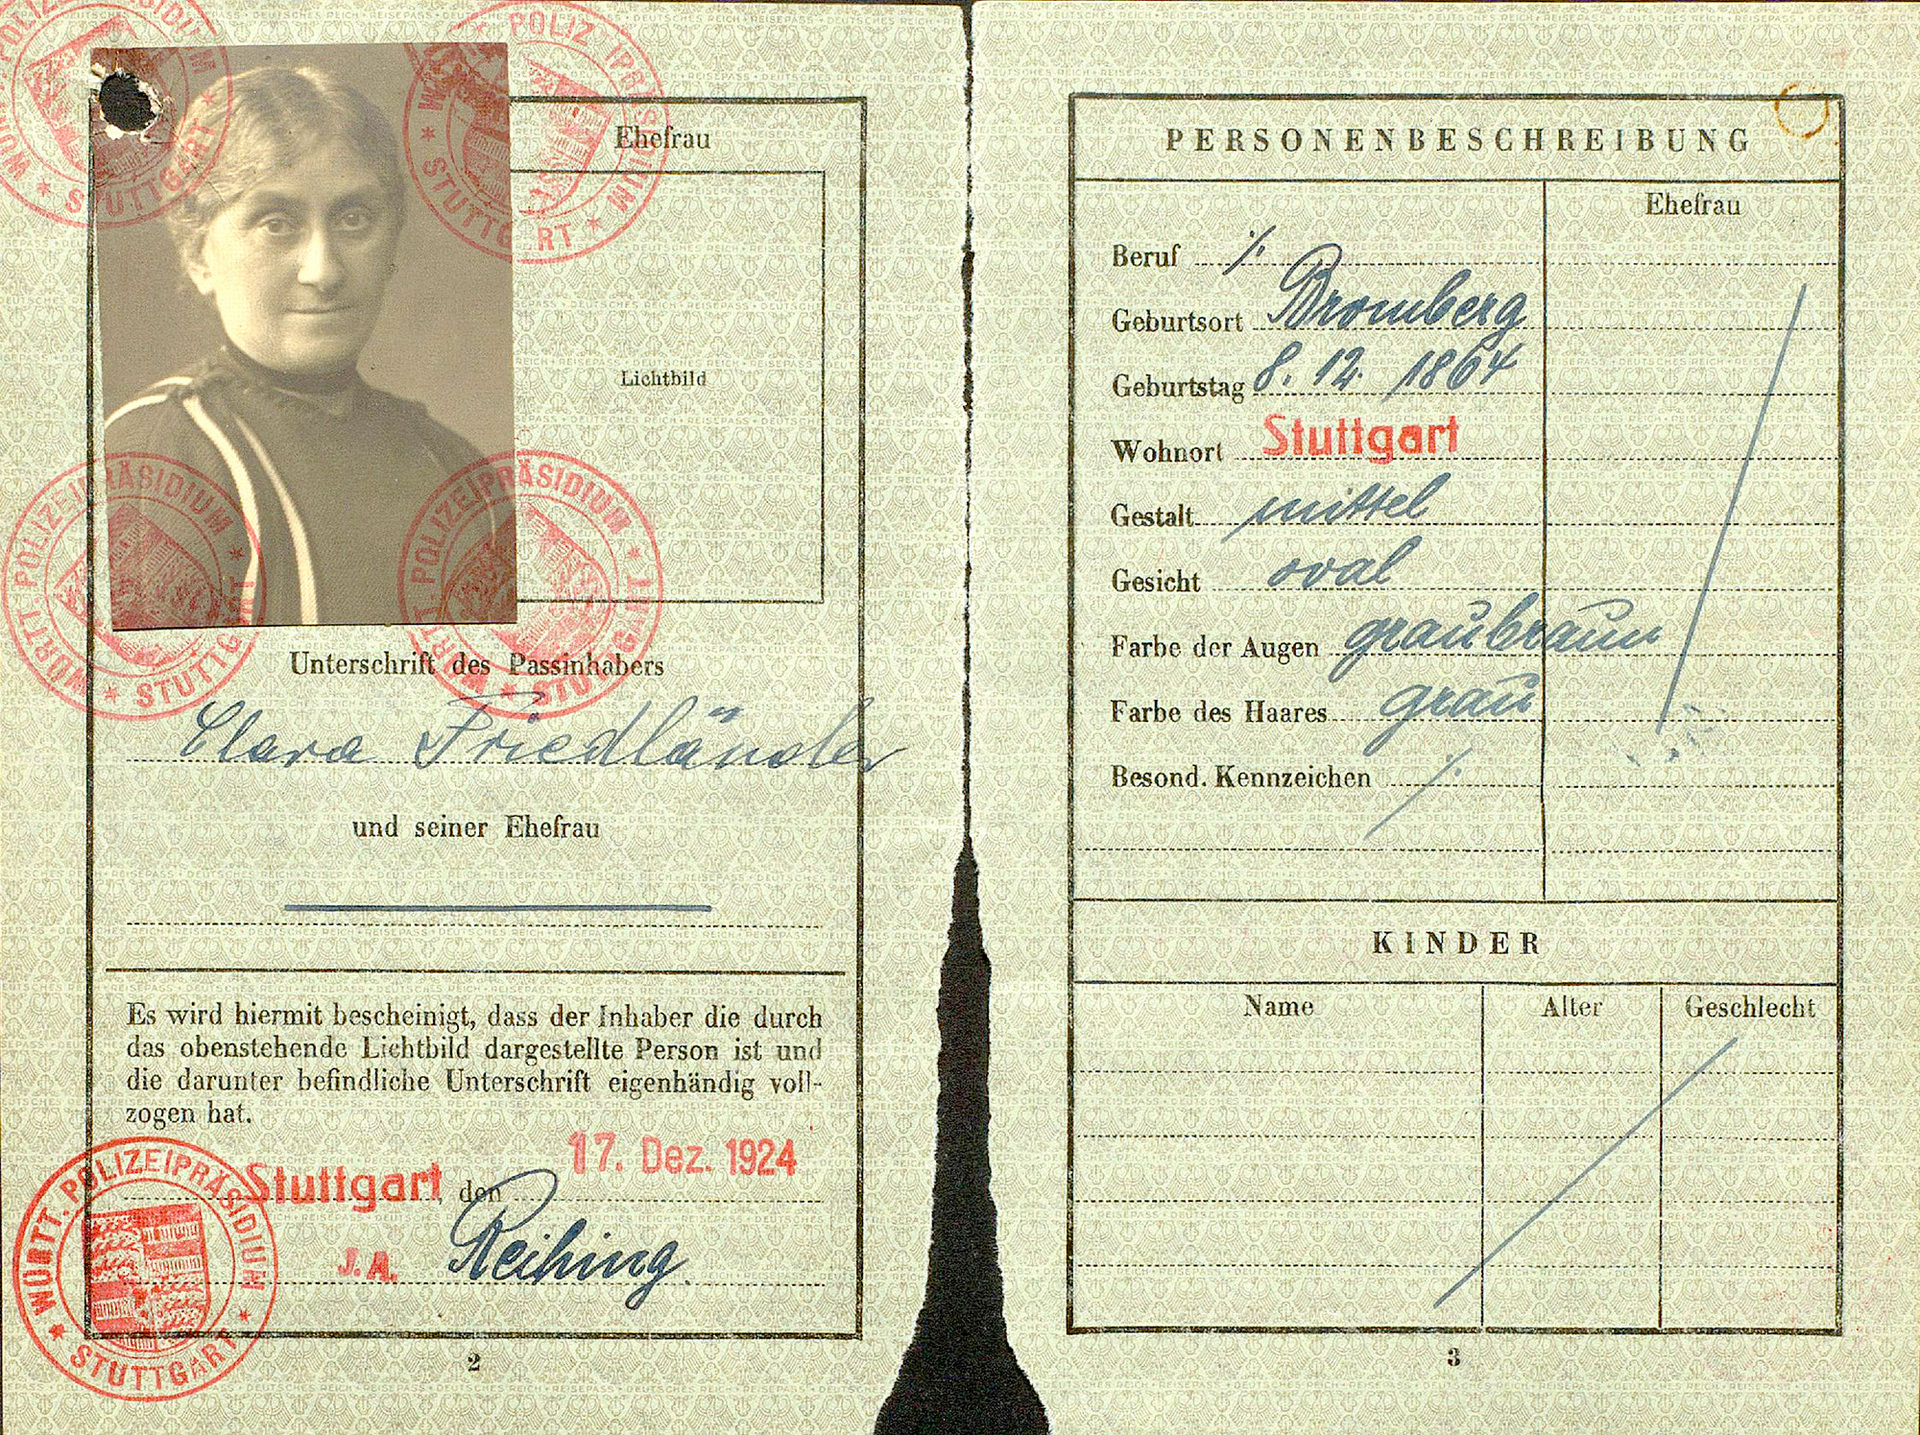 Ehefrau
Lichtbild
WÜRTT. POLIZEIPRÄSIDIUM * STUTTGART *
Unterschrift des Passinhabers
Clara Friedländer
und seiner Ehefrau
Es wird hiermit bescheinigt, dass der Inhaber die durch
das obenstehende Lichtbild dargestellte Person ist und
die darunter befindliche Unterschrift eigenhändig voll-
zogen hat.
Stuttgart, den 17. Dez. 1924
J.A. Reihing
WÜRTT. POLIZEIPRÄSIDIUM * STUTTGART *
2
PERSONENBESCHREIBUNG
Ehefrau
Beruf ./.
Geburtsort Bromberg
Geburtstag 8. 12. 1864
Wohnort Stuttgart
Gestalt mittel
Gesicht oval
Farbe der Augen graubraun
Farbe des Haares grau
Besond. Kennzeichen ./.
KINDER
Name Alter Geschlecht
3